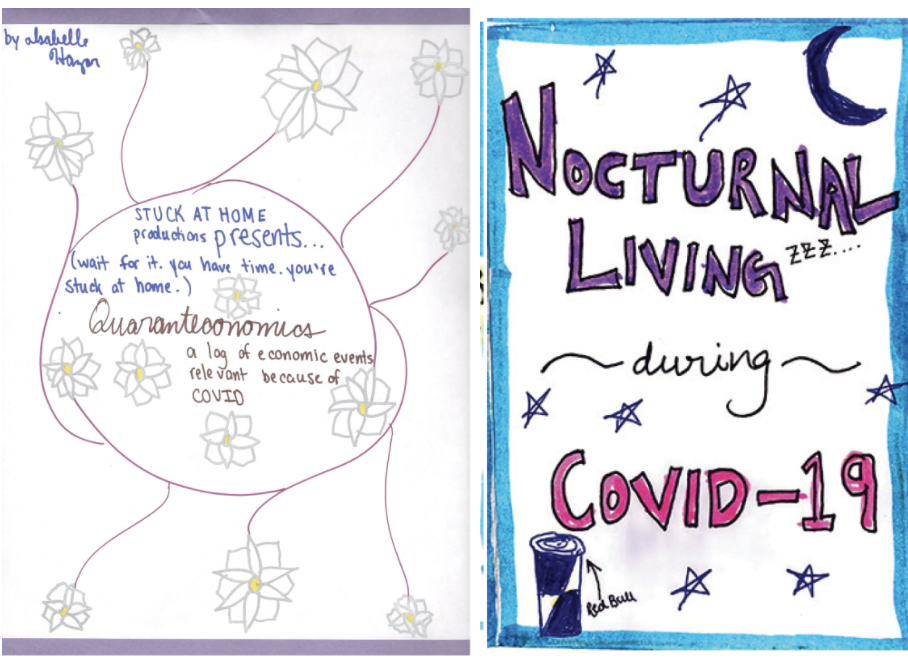 by
STUCK AT HOME
productions presents...
(wait for it. you have time. you're
stuck at home.)
Quaranteconomics
a log of economic events
relevant because of
COVID
NOCTURNAL
LIVING zzz....
~during~
COVID-19
Red Bull